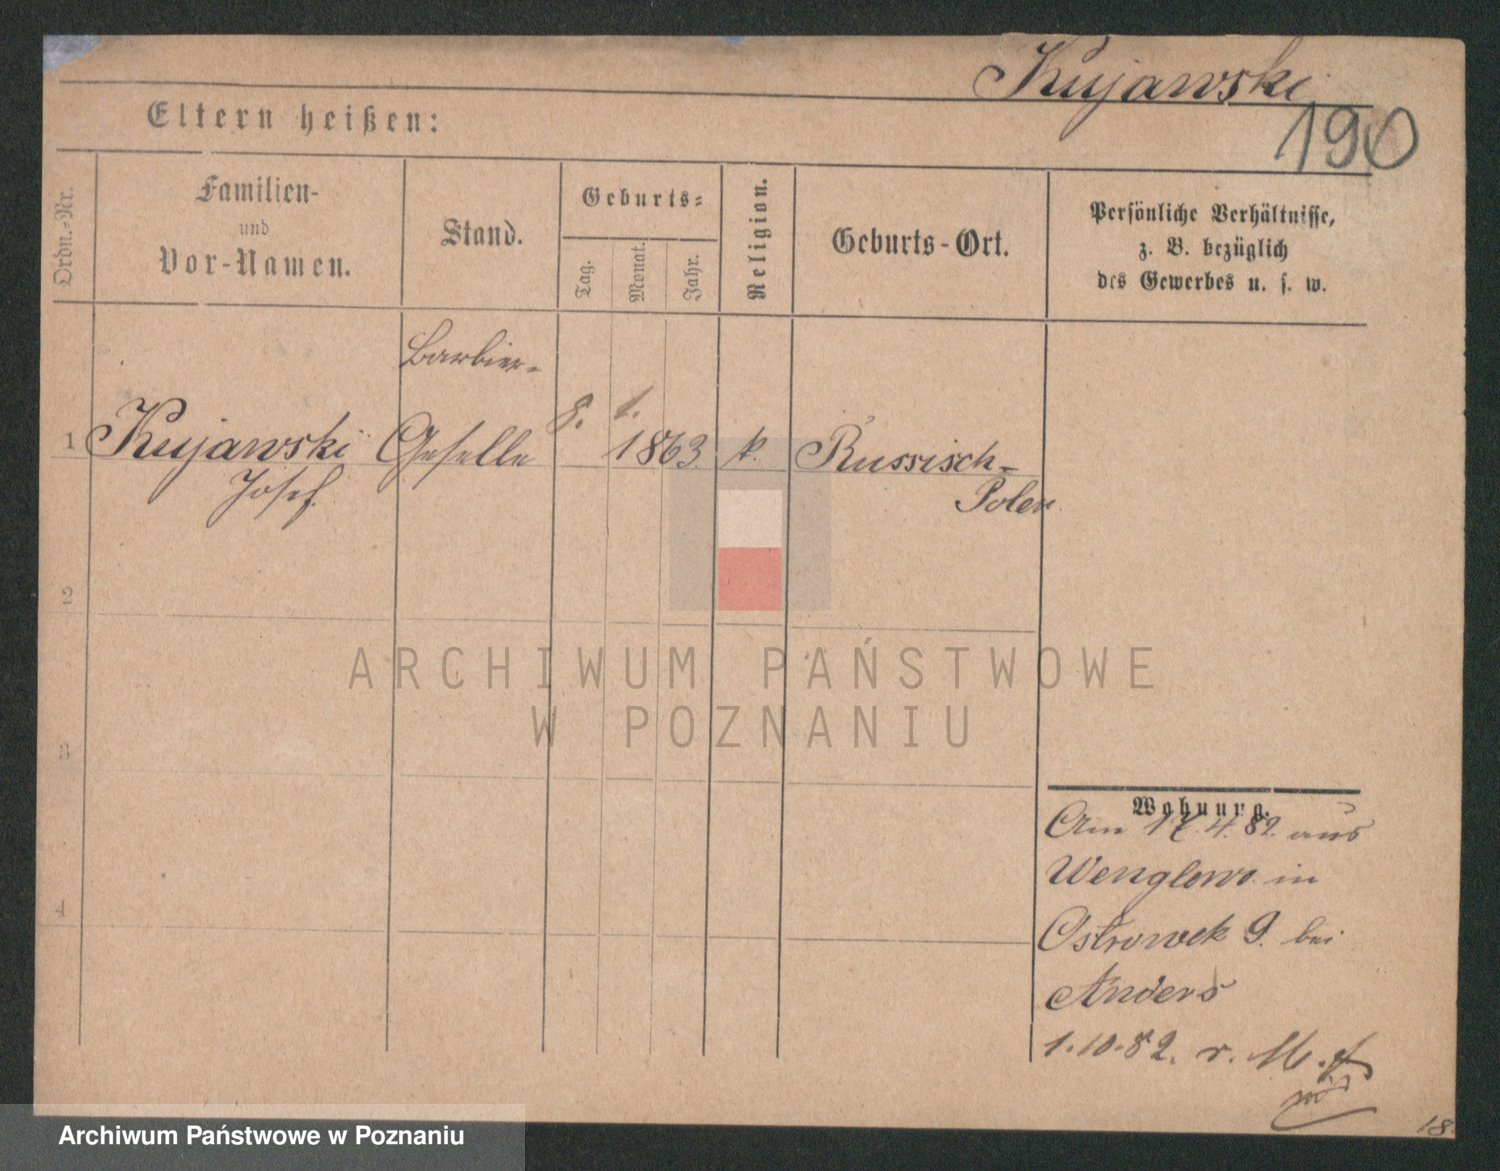 Kujawski
190
Eltern heißen:
Ordn.-Nr.
Familien-
und
Vor-Namen.
Stand.
Geburts-
Tag.
Monat.
Jahr.
Religion.
Geburts-Ort.
Persönliche Verhältnisse,
z. B. bezüglich
des Gewerbes u. s. w.
Barbier-
1 Kujawski Geselle 8. 1. 1863. k. Russisch-
Josef. Polen
2
3
4
ARCHIWUM PAŃSTWOWE
W POZNANIU
Wohnung.
Am 4. 82. aus
Wenglewo in
Ostrowek 9. bei
Anders
1.10.82. v. M.
18.
Archiwum Państwowe w Poznaniu